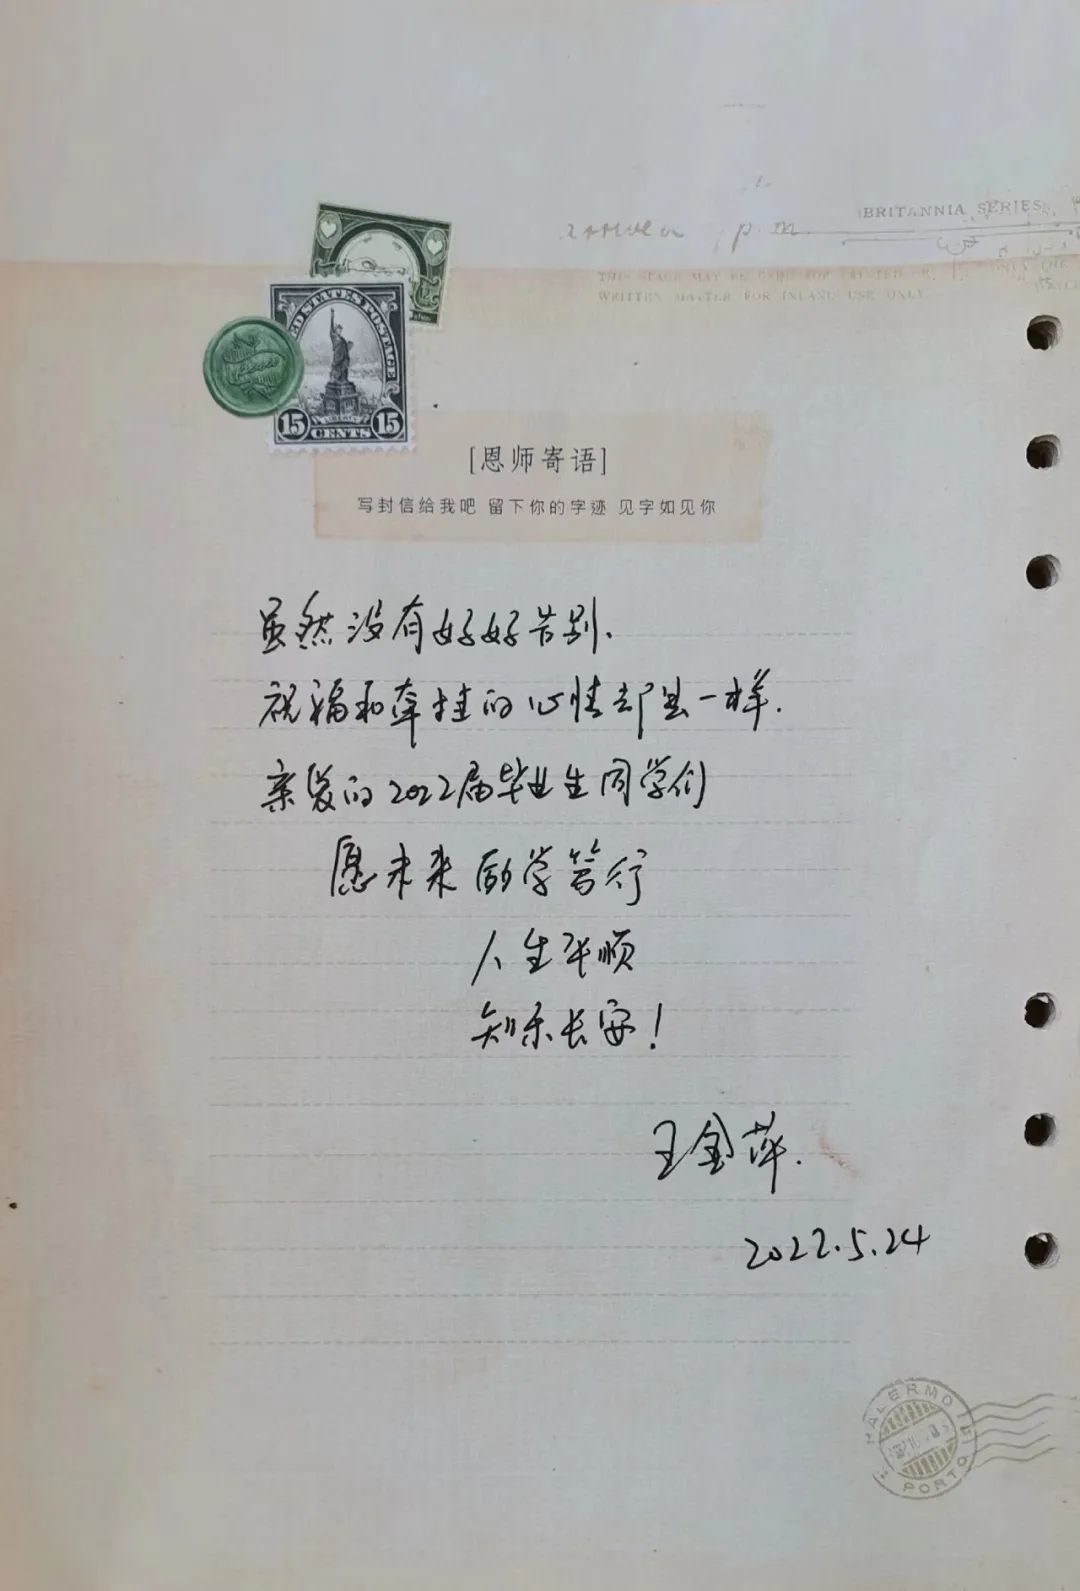 BRITANNIA SERIES
THIS SPACE MAY BE USED FOR PRINTED OR
WRITTEN MATTER FOR INLAND USE ONLY
UNITED STATES POSTAGE
LIBERTY
15 CENTS 15
[恩师寄语]
写封信给我吧 留下你的字迹 见字如见你
虽然没有好好告别.
祝福和牵挂的心情却是一样.
亲爱的2022届毕业生同学们
愿未来励学笃行
人生平顺
知乐长安!
王金萍.
2022.5.24
PALERMO
PORTO